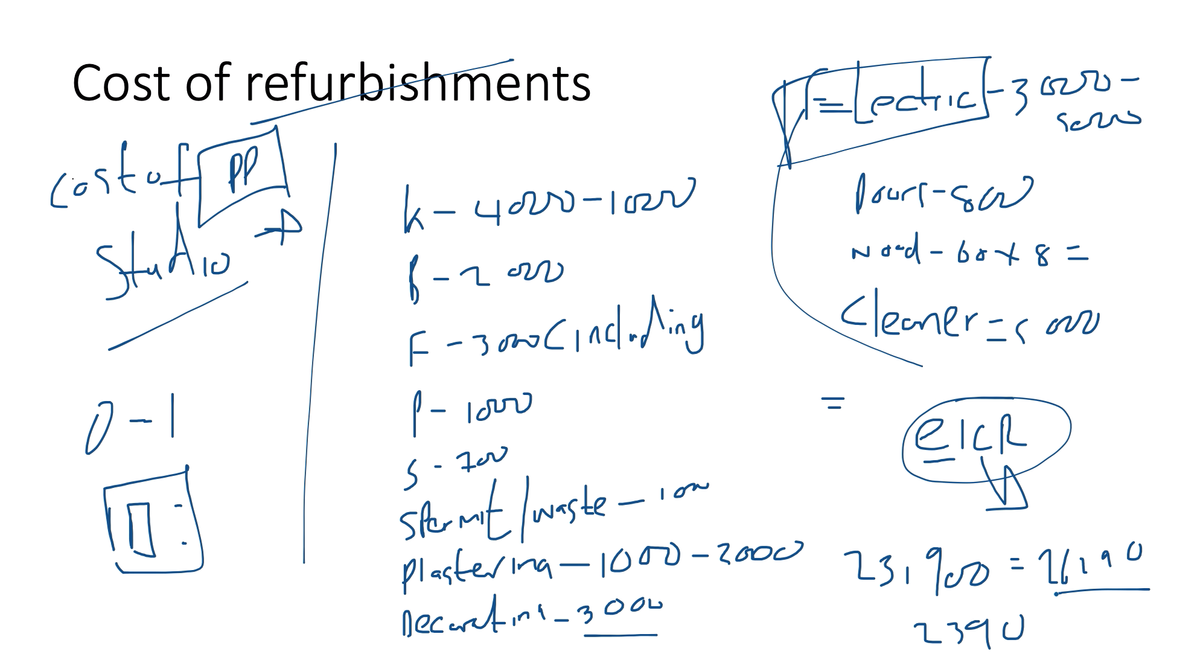 Cost of refurbishments
cost of PP
Studio
0 - 1
k - 4000 - 1000
B - 2000
F - 3000 (including
P - 1000
S - 700
Spermit / waste - 100
Plastering - 1000 - 2000
Decorating - 3000
Electric - 3000 -
5000
Doors - 800
60 x 8 =
Cleaner = 5000
=
eICR
23,900 = 26,190
2390